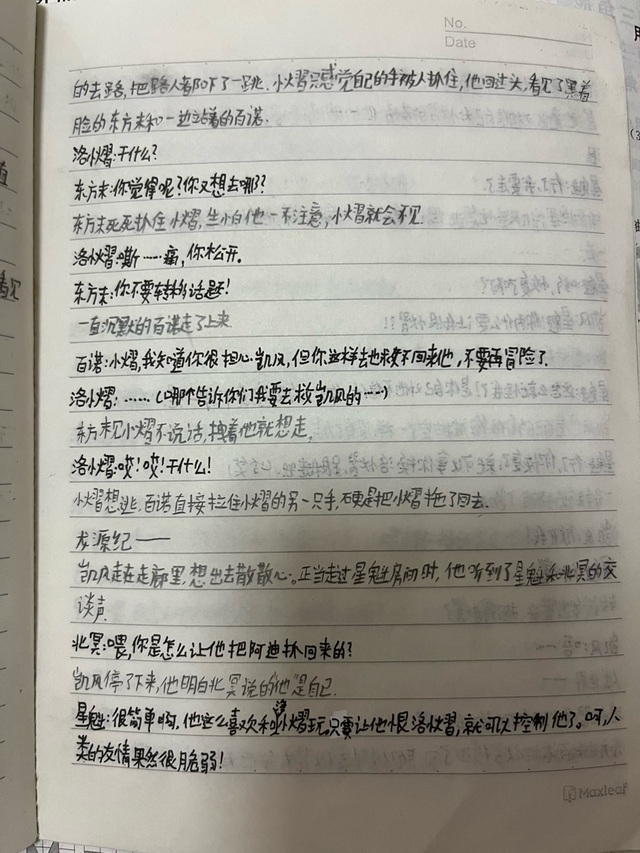 No.
Date
的去路,把路人都吓了一跳.小熠只感觉自己的手被人抓住,他回过头,看见了黑着
脸的东方末和一边站着的百诺.
洛小熠:干什么?
东方末:你觉得呢?你又想去哪?
东方末死死抓住小熠,生怕他一不注意,小熠就会不见.
洛小熠:嘶……痛,你松开。
东方末:你不要转移话题!
一直沉默的百诺走了上来.
百诺:小熠,我知道你很担心凯风,但你这样去也救不回来他,不要再冒险了.
洛小熠:……(哪个告诉你们我要去救凯风的……)
东方末见小熠不说话,拽着他就想走.
洛小熠:哎!哎!干什么!
小熠想逃.百诺直接拉住小熠的另一只手,硬是把小熠拖了回去.
龙源纪——
凯风走在走廊里,想出去散散心。正当走过星魁房间时,他听到了星魁和北冥的交
谈声.
北冥:喂,你是怎么让他把阿迪抓回来的?
凯风停了下来,他明白北冥说的"他"是自己.
星魁:很简单哟,他这么喜欢和洛小熠玩,只要让他恨洛小熠,就可以控制他了。呵,人
类的友情果然很脆弱!
Maxleaf